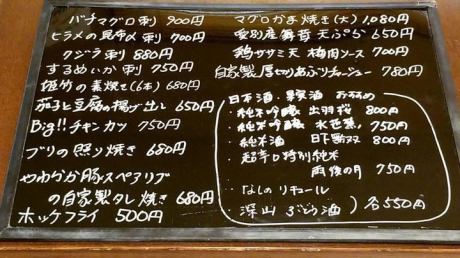 バチマグロ刺 900円
ヒラメの昆布〆刺 700円
クジラ刺 880円
するめいか刺 750円
姫竹の素焼き(6本) 680円
茄子と豆腐の揚げ出し 650円
Big!!チキンカツ 750円
ブリの照り焼き 680円
やわらか豚スペアリブ
の自家製タレ焼き 680円
ホッケフライ 500円
マグロかま焼き(大) 1,080円
愛別産舞茸天ぷら 650円
鶏ササミ天 梅肉ソース 700円
自家製厚切りあぶりチャーシュー 780円
日本酒・果実酒 おすすめ
・純米吟醸 出羽桜 800円
・純米吟醸 水芭蕉 750円
・純米酒 日下無双 800円
・超辛口特別純米
雨後の月 750円
・なしのリキュール
・深山ぶどう酒 各550円